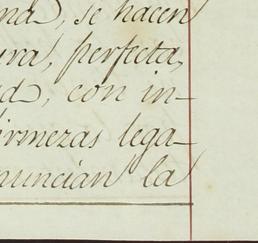 se hacen
perfecta,
con in-
firmezas lega-
nuncian la